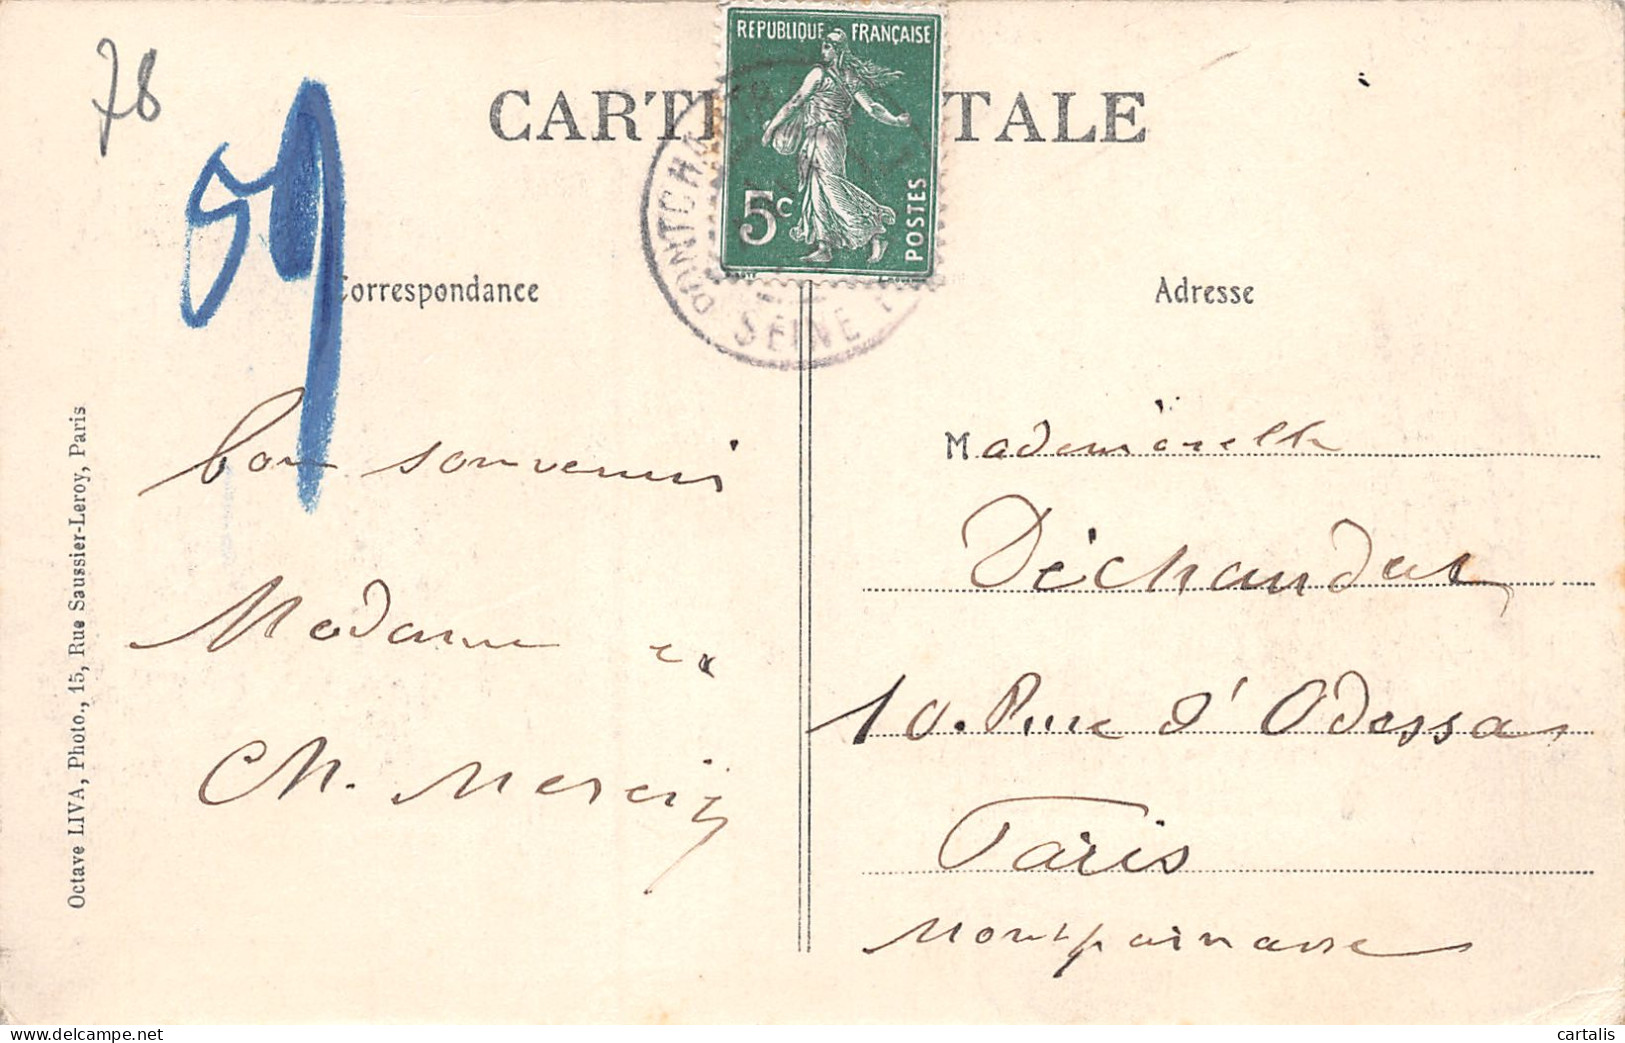 78
59
REPUBLIQUE FRANÇAISE
5c
POSTES
CART TALE
PONTCHA
SEINE
Correspondance
Adresse
Octave LIVA, Photo., 15, Rue Saussier-Leroy, Paris
bon souvenir
Madame et
Ch. Mercier
Mademoiselle
Déchandat
10. Rue d'Odessa
Paris
Montparnasse
cartalis
delcampe.net